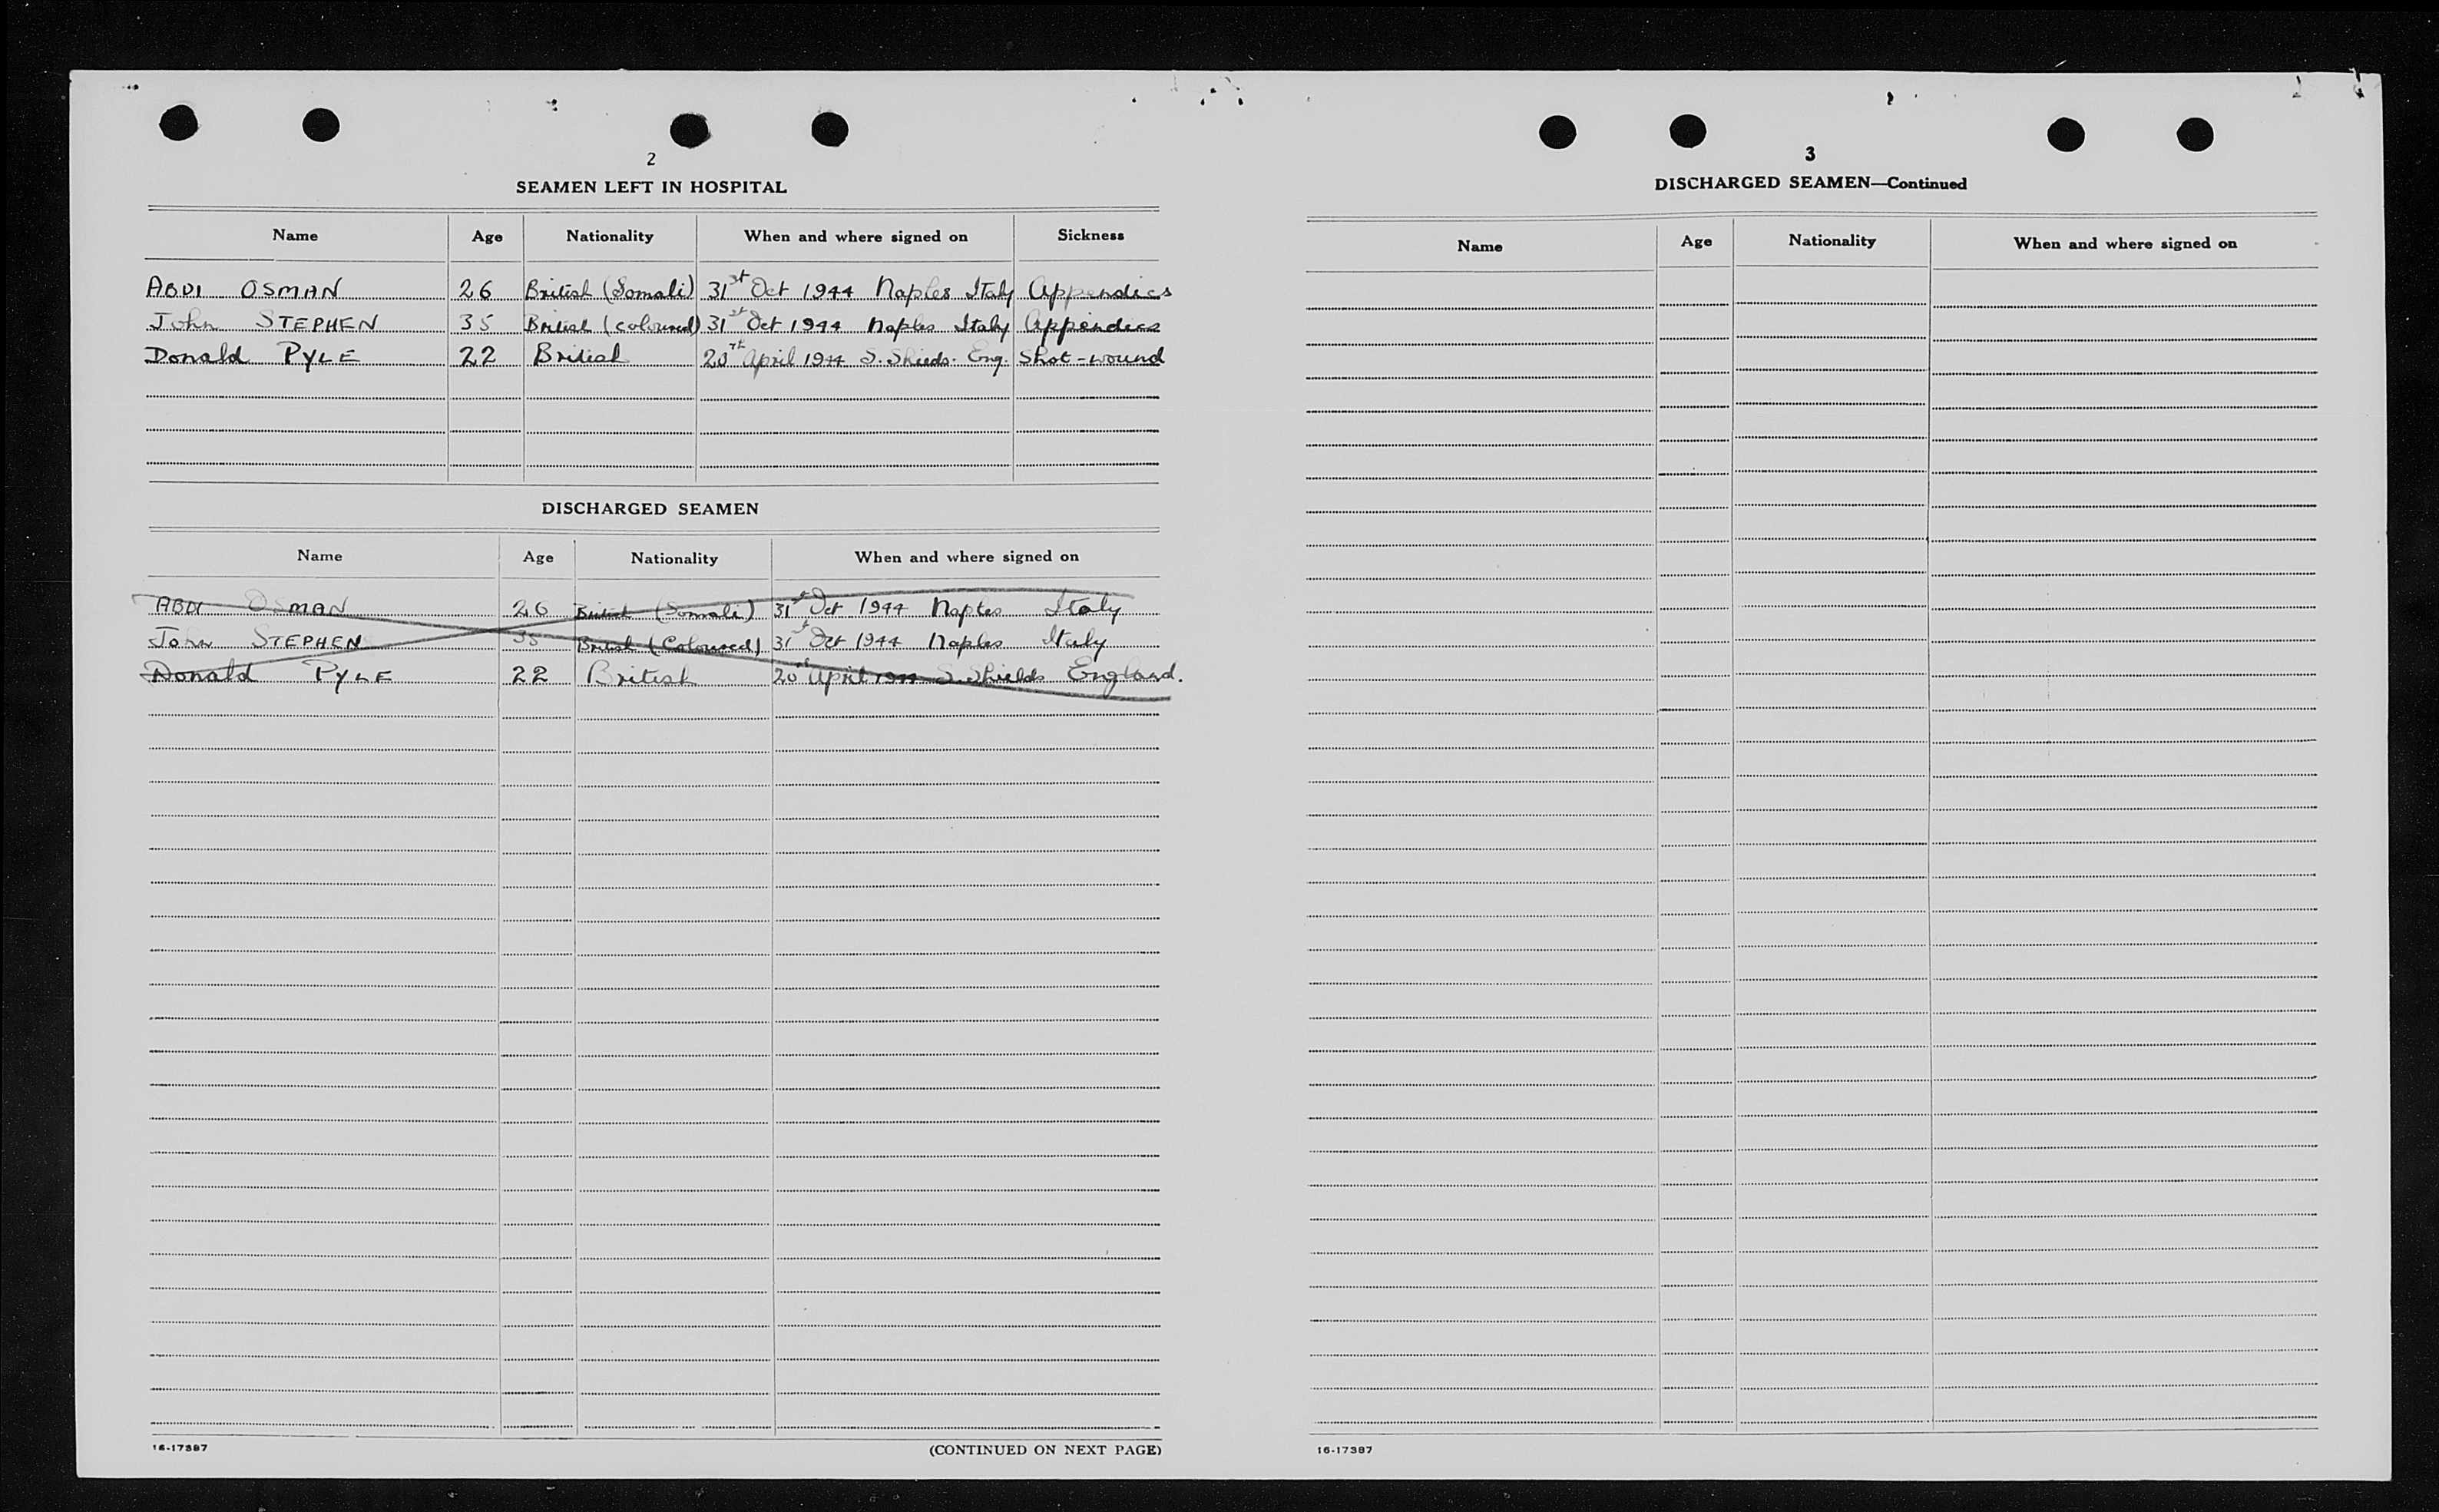 2
SEAMEN LEFT IN HOSPITAL
Name Age Nationality When and where signed on Sickness
ABDI OSMAN 26 British (Somali) 31st Oct 1944 Naples Italy Appendics
John STEPHEN 35 British (coloured) 31st Oct 1944 Naples Italy Appendics
Donald PYLE 22 British 20th April 1944 S. Shieds. Eng. Shot-wound
DISCHARGED SEAMEN
Name Age Nationality When and where signed on
ABDI OSMAN 26 British (Somali) 31st Oct 1944 Naples Italy
John STEPHEN 35 British (Coloured) 31st Oct 1944 Naples Italy
Donald PYLE 22 British 20th April 1944 S. Shields England.
16-17387
(CONTINUED ON NEXT PAGE)
3
DISCHARGED SEAMEN—Continued
Name Age Nationality When and where signed on
16-17387